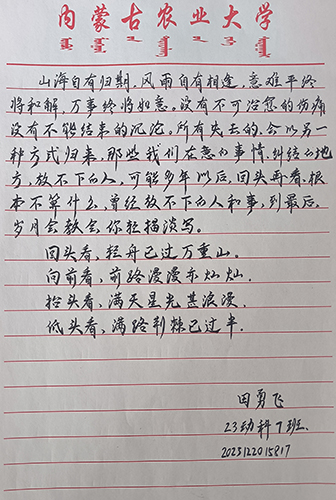 内蒙古农业大学
山海自有归期，风雨自有相逢，意难平终
将和解，万事终将如意。没有不可治愈的伤痛
没有不能结束的沉沦。所有失去的，会以另一
种方式归来，那些我们在意的事情，纠结的地
方，放不下的人，可能多年以后，回头再看，根
本不算什么，曾经放不下的人和事，到最后，
岁月会教会你轻描淡写。
回头看，轻舟已过万重山。
向前看，前路漫漫亦灿灿。
抬头看，满天星光甚浪漫。
低头看，满路荆棘已过半。
田勇飞
23动科7班.
2023122015817